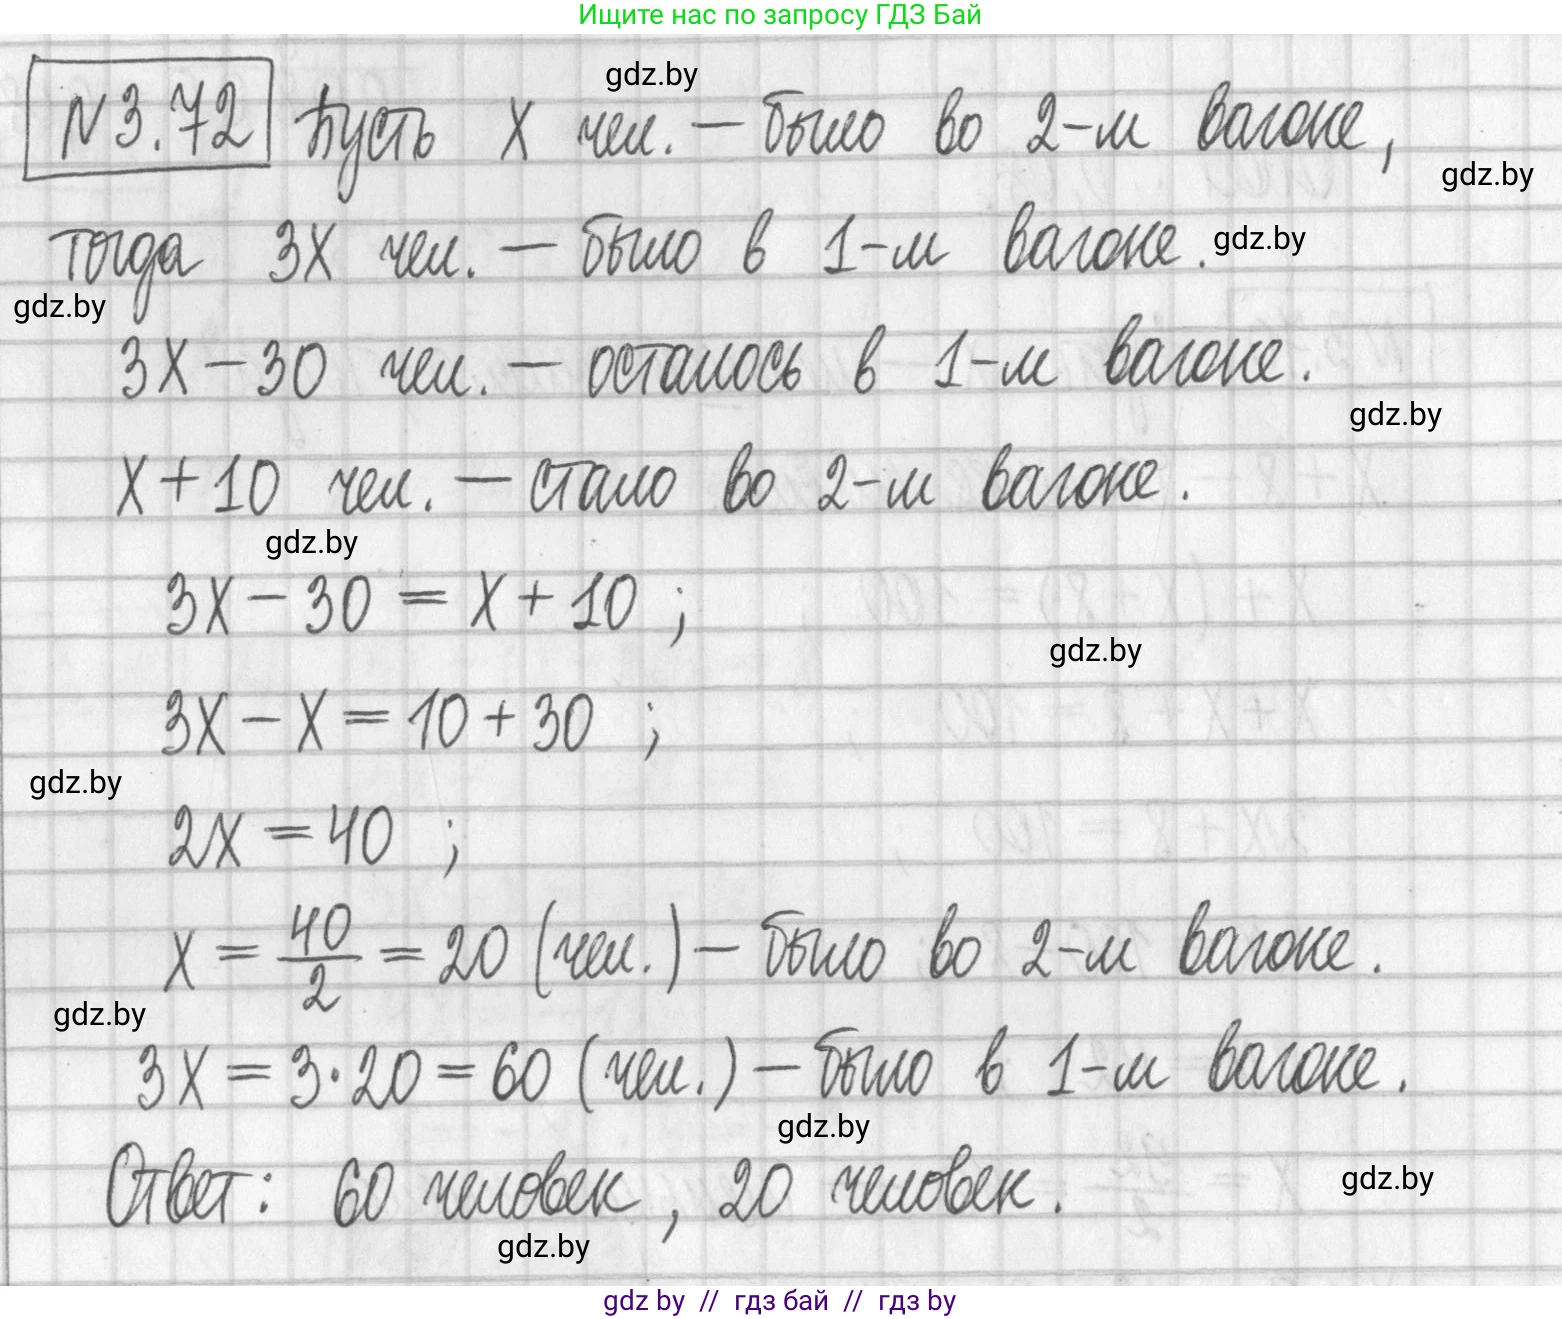 Ищите нас по запросу ГДЗ Бай
gdz.by
N 3.72 Пусть x чел. – было во 2-м вагоне,
gdz.by
тогда 3x чел. – было в 1-м вагоне. gdz.by
gdz.by
3x – 30 чел. – осталось в 1-м вагоне.
gdz.by
x + 10 чел. – стало во 2-м вагоне.
gdz.by
3x – 30 = x + 10 ;
gdz.by
3x – x = 10 + 30 ;
gdz.by
2x = 40 ;
x = 40/2 = 20 (чел.) – было во 2-м вагоне.
gdz.by
3x = 3·20 = 60 (чел.) – было в 1-м вагоне.
gdz.by
Ответ: 60 человек, 20 человек.
gdz.by
gdz.by
gdz by // гдз бай // гдз by